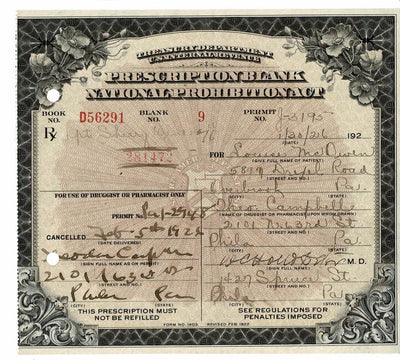 TREASURY DEPARTMENT
U.S. INTERNAL REVENUE
PRESCRIPTION BLANK
NATIONAL PROHIBITION ACT
BOOK NO. D56291 BLANK NO. 9 PERMIT NO.
192
Rx
281472
FOR Louise
(GIVE FULL NAME OF PATIENT)
5819 Road
(STREET AND NO.)
Pa.
(CITY) (STATE)
FOR USE OF DRUGGIST OR PHARMACIST ONLY
Theo Campbell
(GIVE NAME OF DRUGGIST OR PHARMACIST UPON WHOM DRAWN)
PERMIT No. Pa-
2101 N. 63rd St
(STREET AND NO.)
CANCELLED Feb. 5th 1926
(DATE DELIVERED)
Phila Pa
(CITY) (STATE)
(SIGN FULL NAME)
M.D.
(SIGN FULL NAME OR NO PERMIT)
2101 N 63rd St
(STREET AND NO.)
1427 Spruce St
(STREET AND NO.)
Phila Pa
(CITY) (STATE)
Phila Pa
(CITY) (STATE)
THIS PRESCRIPTION MUST
NOT BE REFILLED
SEE REGULATIONS FOR
PENALTIES IMPOSED
FORM NO. 1403 REVISED FEB. 1922